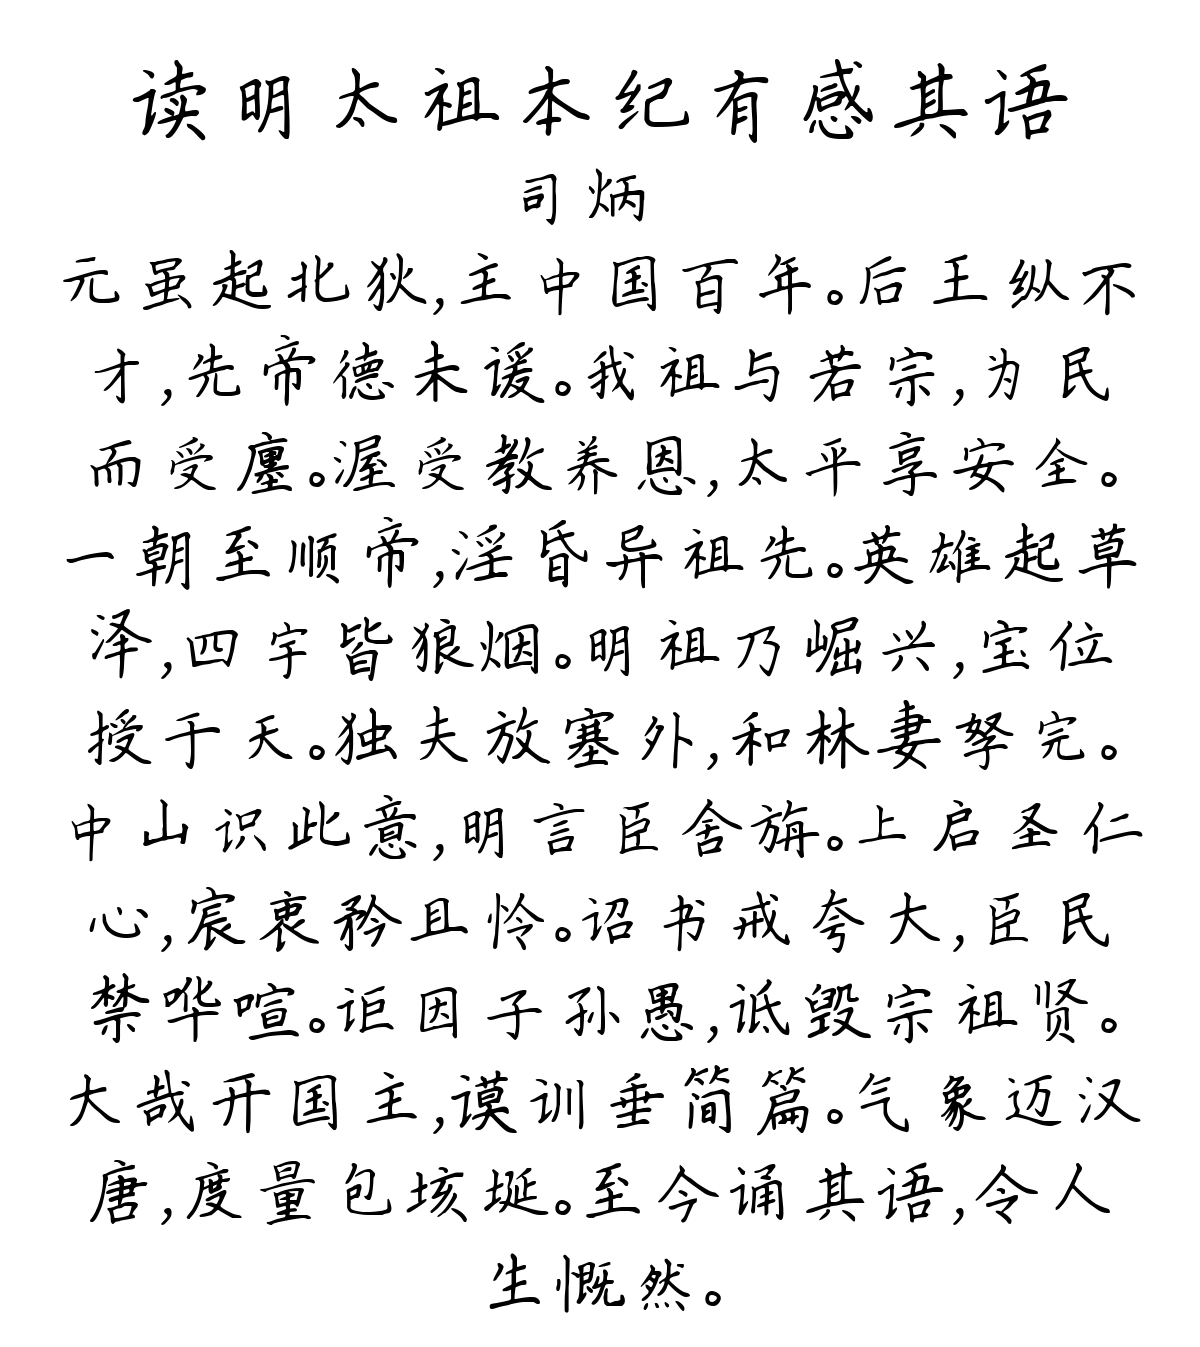 读明太祖本纪有感其语
司炳
元虽起北狄,主中国百年。后王纵不
才,先帝德未谖。我祖与若宗,为民
而受廛。渥受教养恩,太平享安全。
一朝至顺帝,淫昏异祖先。英雄起草
泽,四宇皆狼烟。明祖乃崛兴,宝位
授于天。独夫放塞外,和林妻孥完。
中山识此意,明言臣舍旃。上启圣仁
心,宸衷矜且怜。诏书戒夸大,臣民
禁哗喧。讵因子孙愚,诋毁宗祖贤。
大哉开国主,谟训垂简篇。气象迈汉
唐,度量包垓埏。至今诵其语,令人
生慨然。